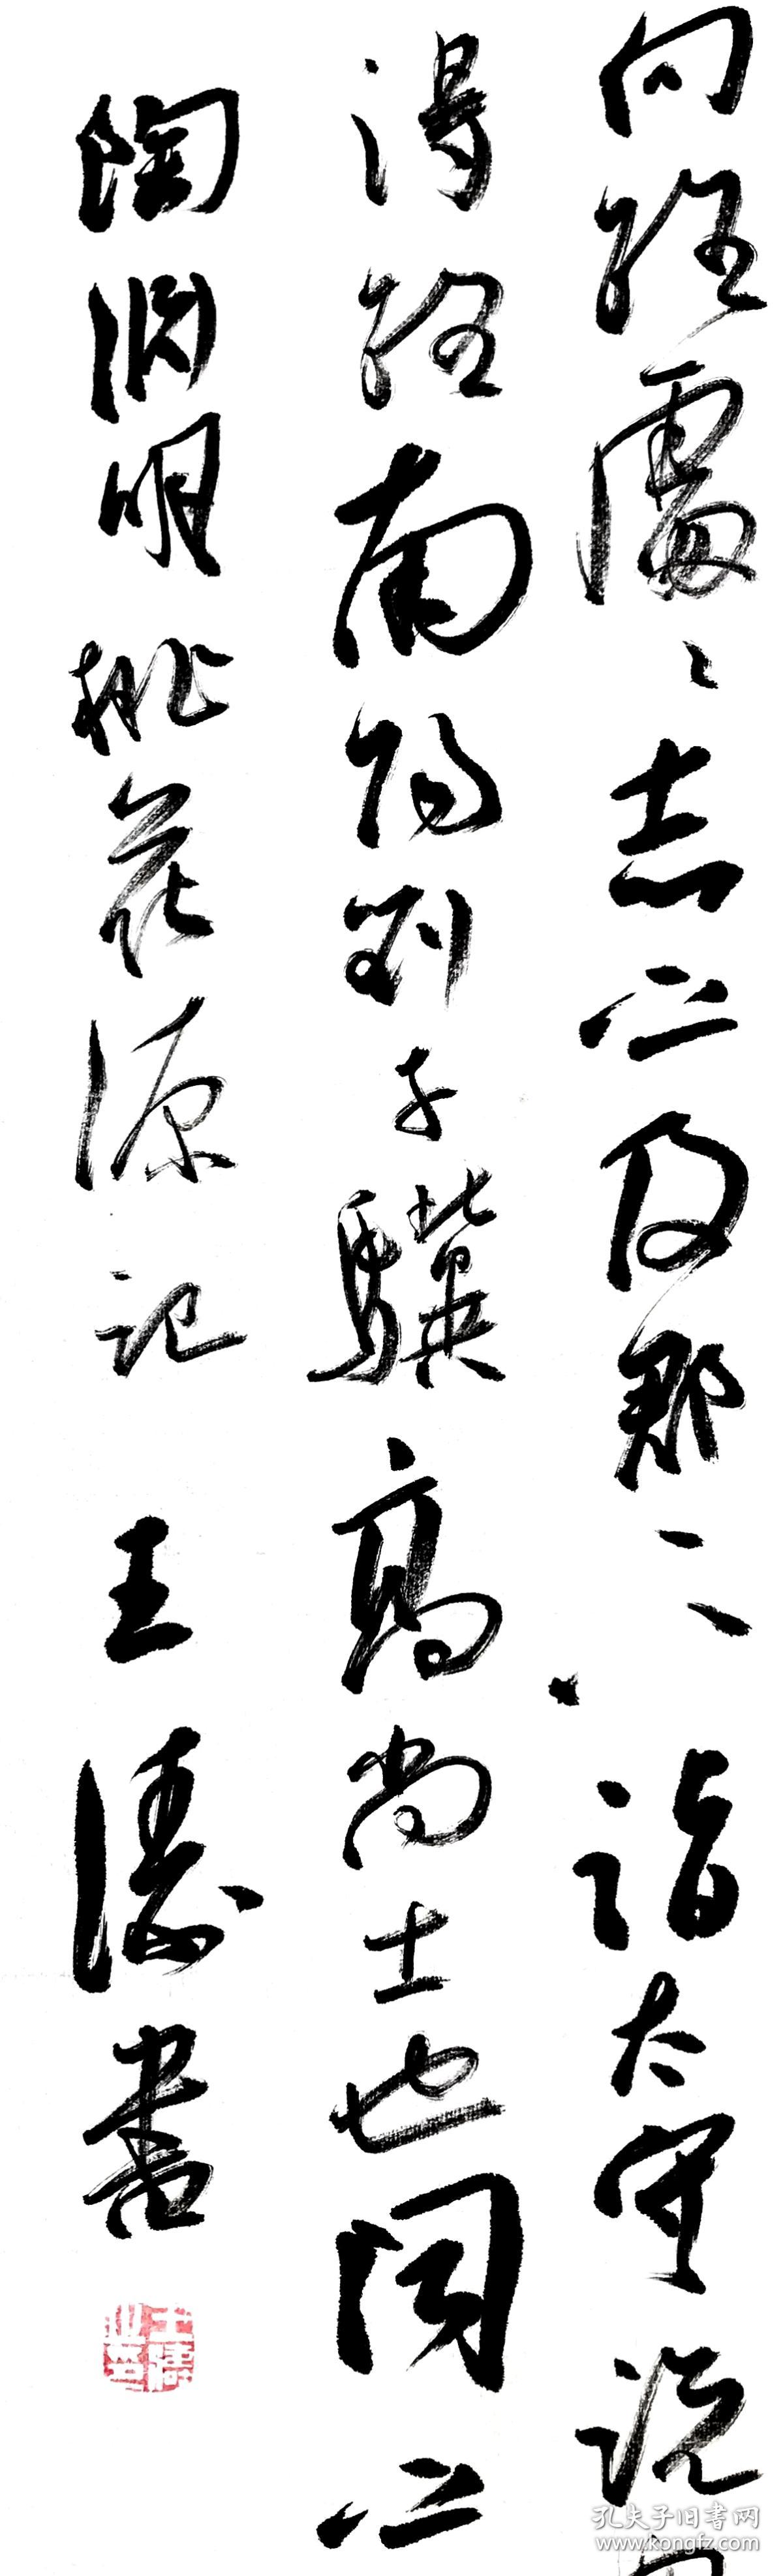 向路處々志之及郡下詣太守說
得路南陽劉子驥高尚士也聞之
陶淵明桃花源記 王濤書
孔夫子旧書网
www.kongfz.com